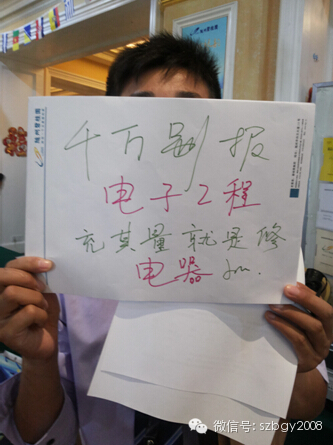 千万别报
电子工程
充其量就是修
电器的.
微信号: szbgy2008